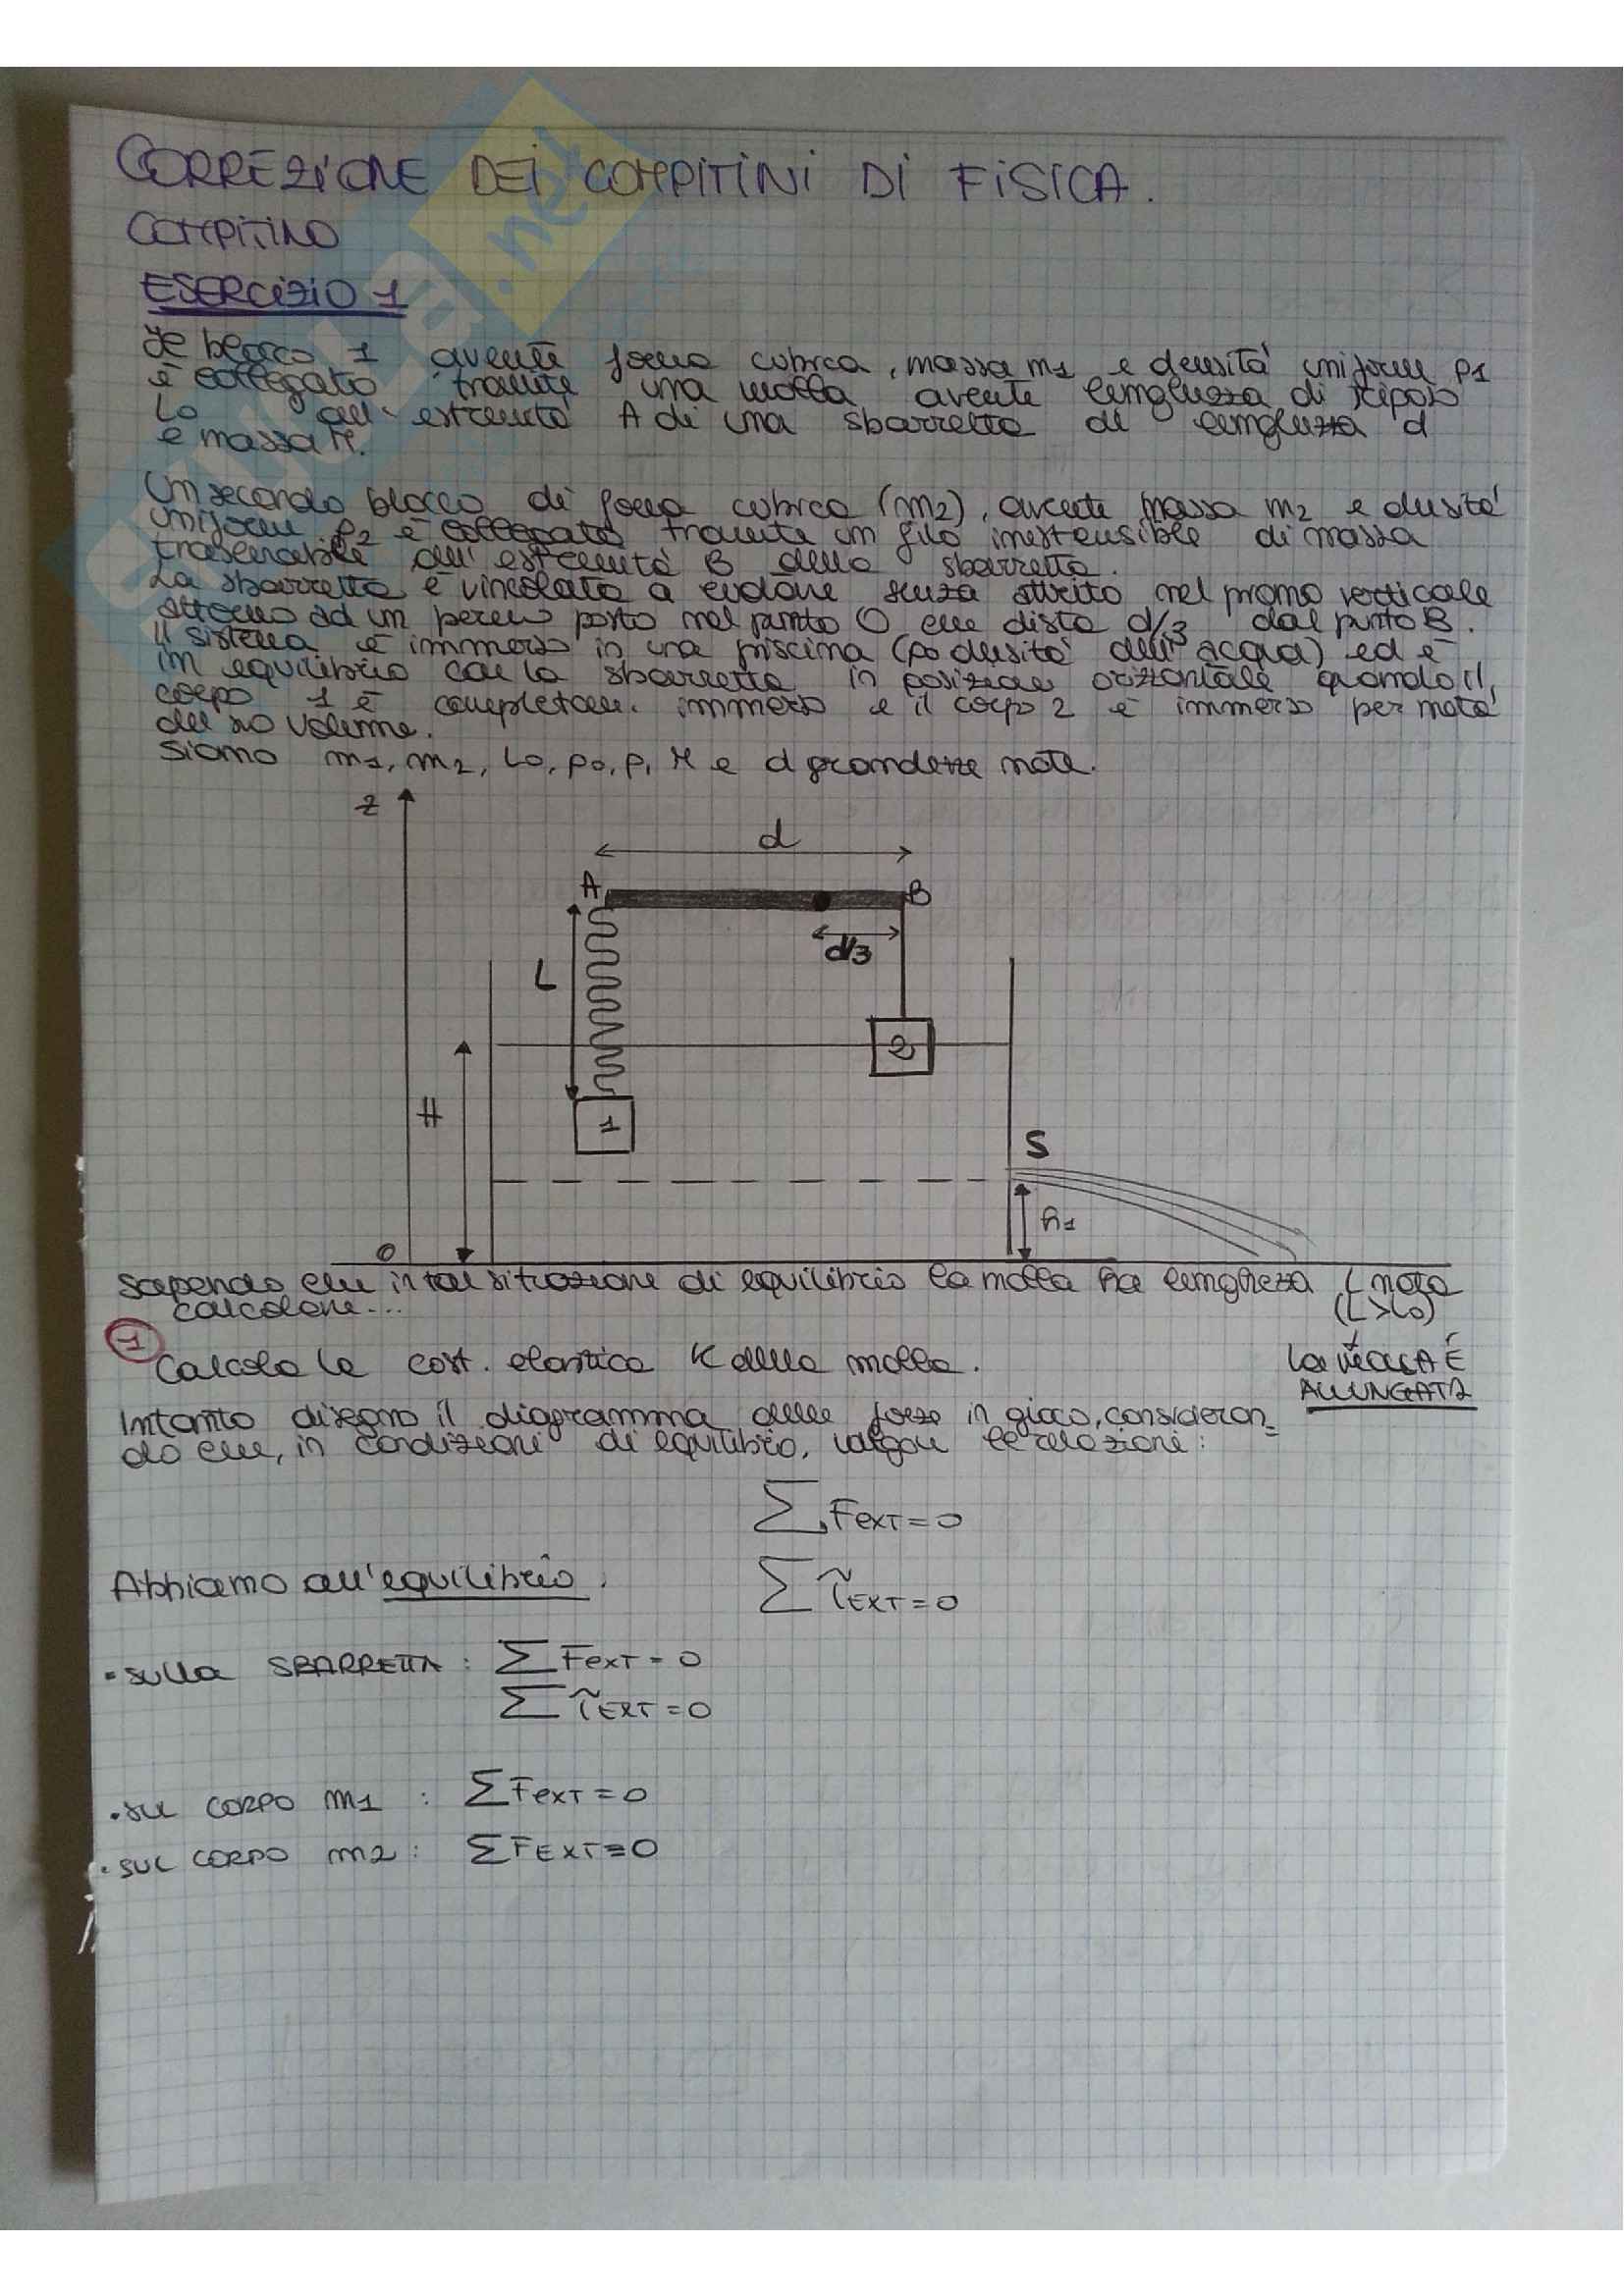 CORREZIONE DEI COMPITINI DI FISICA.
COMPITINO
ESERCIZIO 1
Il blocco 1 avente forma cubica, massa m1 e densità uniforme ρ1
è collegato tramite una molla avente lunghezza di riposo
Lo all'estremità A di una sbarretta di lunghezza d
e massa M.
Un secondo blocco di forma cubica (m2), avente massa m2 e densità
uniforme ρ2 è collegato tramite un filo inestensibile di massa
trascurabile all'estremità B della sbarretta.
La sbarretta è vincolata a ruotare senza attrito nel piano verticale
attorno ad un perno posto nel punto O che dista d/3 dal punto B.
Il sistema è immerso in una piscina (ρo densità dell'acqua) ed è
in equilibrio con la sbarretta in posizione orizzontale quando il
corpo 1 è completam. immerso e il corpo 2 è immerso per metà
del suo volume.
Siano m1, m2, Lo, ρo, ρ, M e d grandezze note.
z
d
A
B
d/3
L
2
H
1
S
h1
O
Sapendo che in tal situazione di equilibrio la molla ha lunghezza L nota
calcolare... (L>Lo)
1
Calcola le cost. elastica K della molla.
La MOLLA È
ALLUNGATA
Intanto disegno il diagramma delle forze in gioco, consideran=
do che, in condizioni di equilibrio, valgono le relazioni:
∑ Fext=0
Abbiamo all'equilibrio.
∑ τ̃EXT=0
• sulla SBARRETTA: ∑ Fext=0
∑ τ̃EXT=0
• sul CORPO m1 : ∑Fext=0
• SUL CORPO m2: ∑FEXT=0